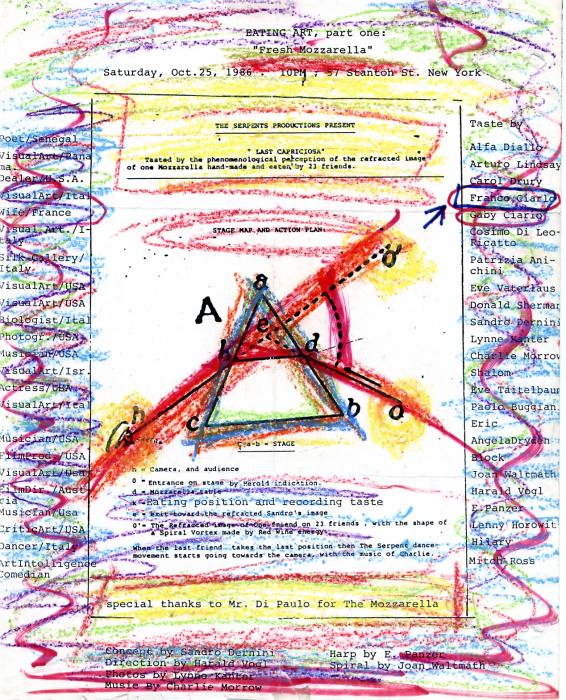 EATING ART, part one:
"Fresh Mozzarella"
Saturday, Oct.25, 1986 . 10PM ; 57 Stanton St. New York
THE SERPENTS PRODUCTIONS PRESENT
" LAST CAPRICIOSA"
Tasted by the phenomenological perception of the refracted image
of one Mozzarella hand-made and eaten by 23 friends.
STAGE MAP AND ACTION PLAN:
A
a
o'
e
h
d
c
b
o
C-a-b = STAGE
h = Camera, and audience
O = Entrance on stage by Herold indication.
d = Mozzarella table
Eating position and recording taste
e = Exit toward the refracted Sandro's image
O'= The Refracted image of one friend on 23 friends , with the shape of
a Spiral Vortex made by Red Wine energy.
When the last friend takes the last position then The Serpent dance
movement starts going towards the camera, with the music of Charlie.
special thanks to Mr. Di Paulo for The Mozzarella
Concept by Sandro Dernini
Direction by Harald Vogl
Photos by Lynne Kanter
Music By Charlie Morrow
Harp by E. Panzer
Spiral by Joan Waltmath
Poet/Senegal
VisualArt/Pana
ma.
Dealer/U.S.A.
VisualArt/Ital
Wife/France
Visual Art./I-
taly
Silk Gallery/
Italy
VisualArt/USA
VisualArt/USA
Biologist/Ital
Photogr./USA
Musician/USA
VisualArt/Isr.
Actress/USA
VisualArt/Ital
Musician/USA
FilmProd./USA
VisualArt/USA
FilmDir./Aust
Musician/USA
CriticArt/USA
Dancer/Italy
ArtIntelligence
Comedian
Taste by
Alfa Diallo
Arturo Lindsay
Carol Drury
Franco Ciarlo
Gaby Ciarlo
Cosimo Di Leo-
Ricatto
Patrizia Ani-
chini
Eve Vaterlaus
Donald Sherman
Sandro Dernini
Lynne Kanter
Charlie Morrow
Shalom
Eve Taitelbaum
Paolo Buggian
Eric
AngelaDryden
Block
Joan Waltmath
Harald Vogl
E.Panzer
Lenny Horowit
Hilary
Mitch Ross